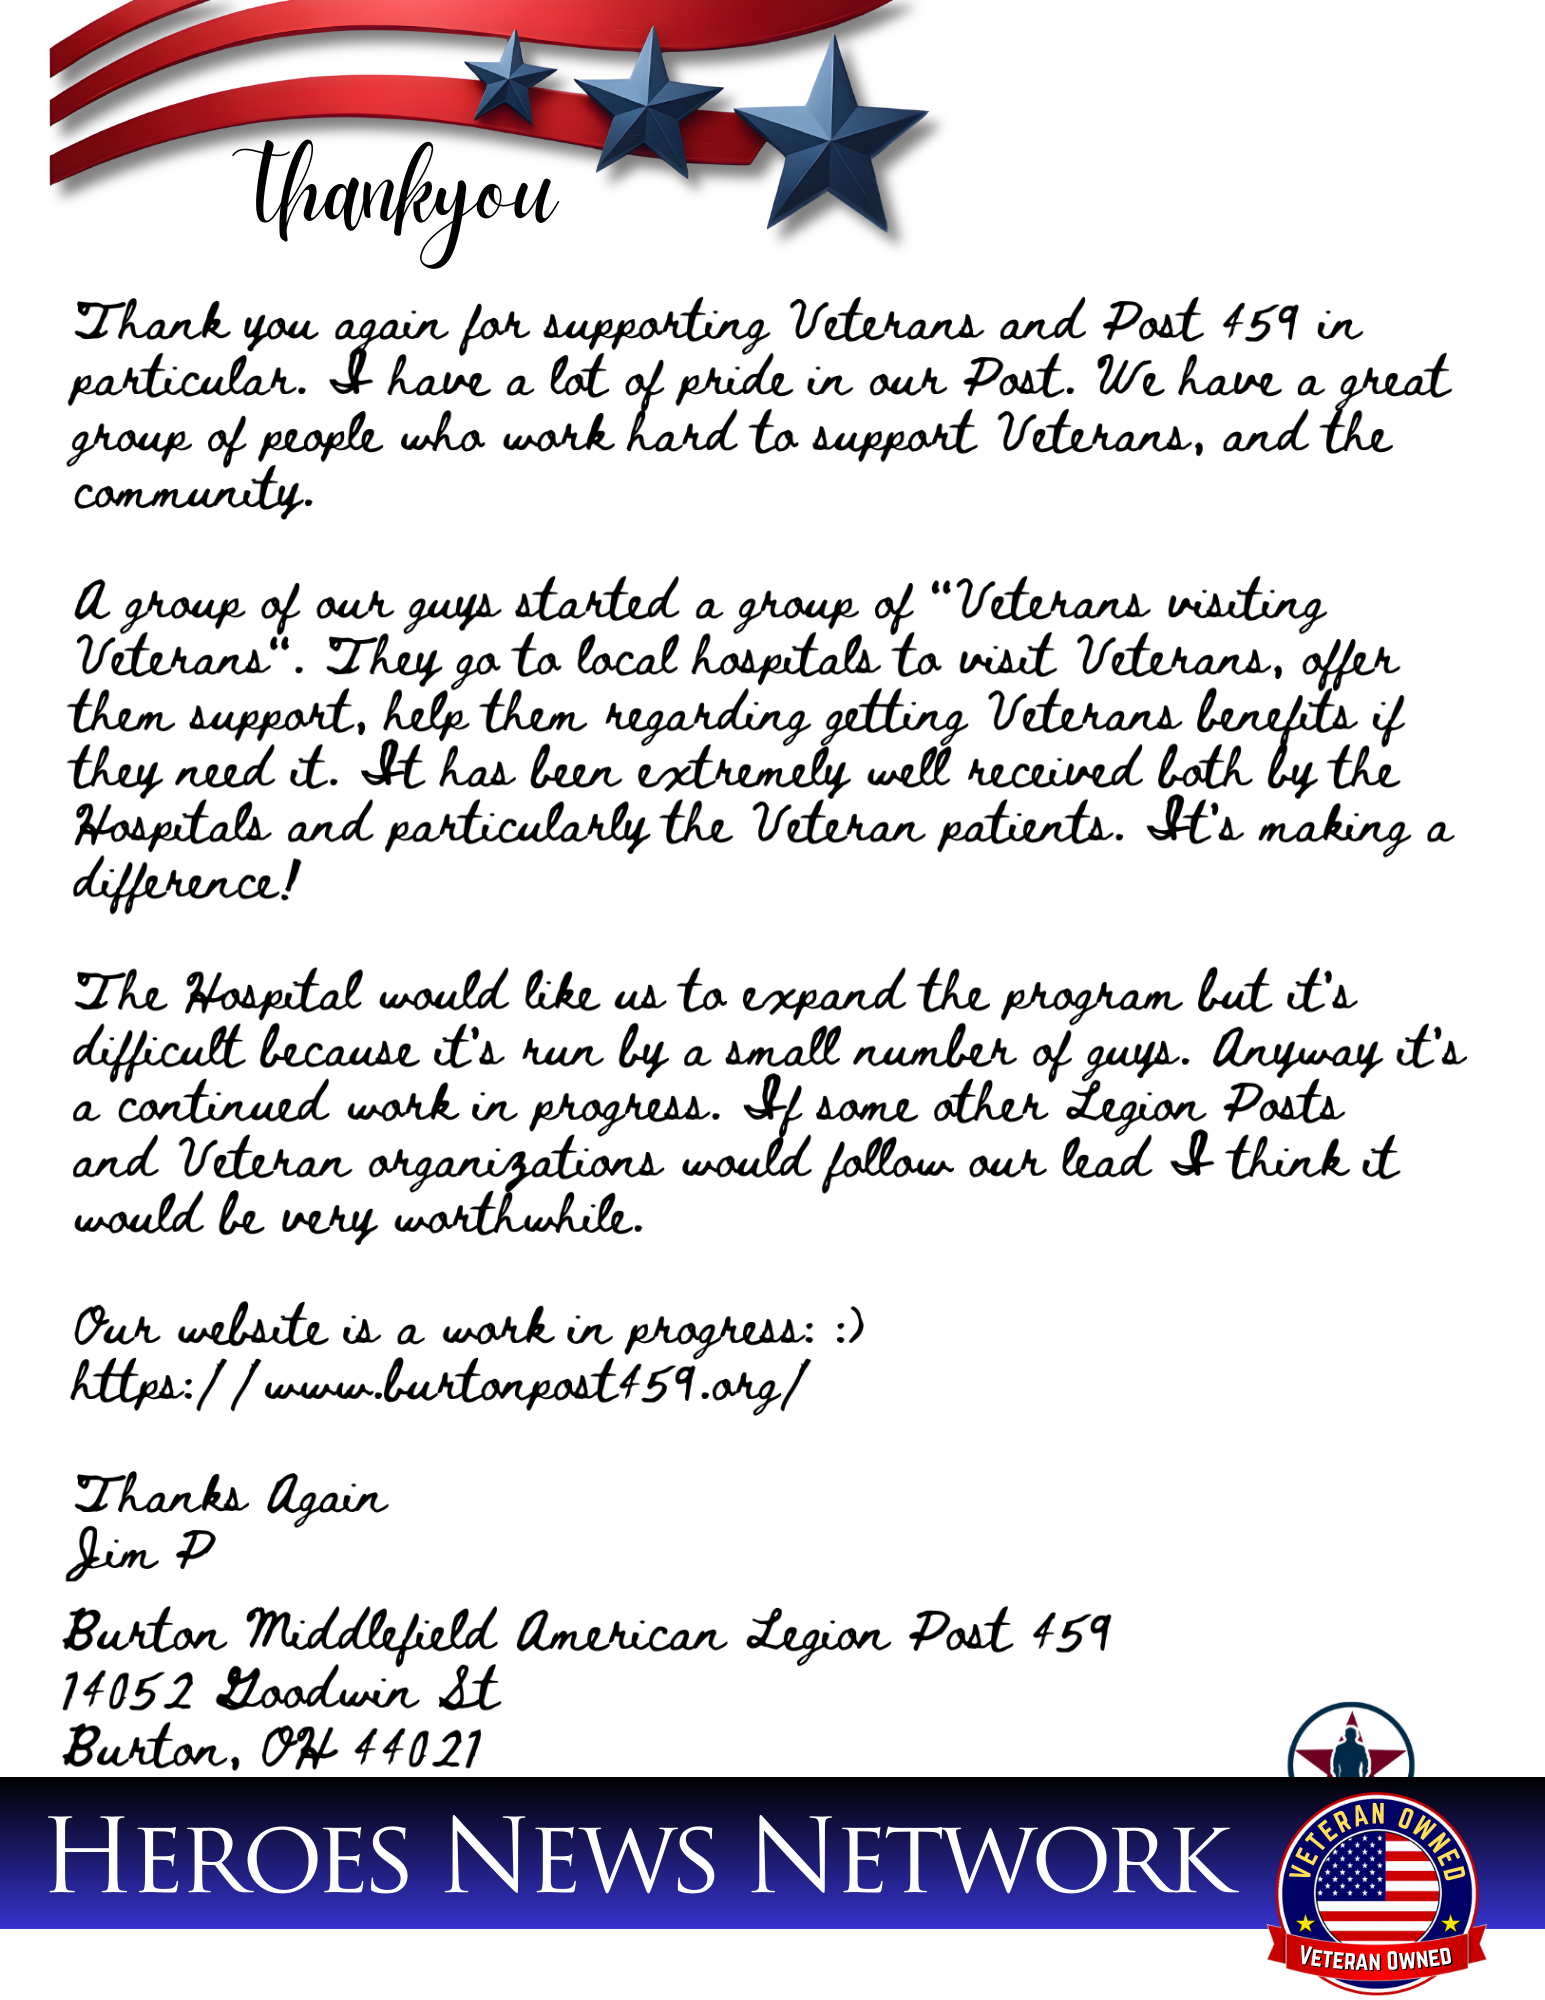 thankyou
Thank you again for supporting Veterans and Post 459 in
particular. I have a lot of pride in our Post. We have a great
group of people who work hard to support Veterans, and the
community.
A group of our guys started a group of “Veterans visiting
Veterans“. They go to local hospitals to visit Veterans, offer
them support, help them regarding getting Veterans benefits if
they need it. It has been extremely well received both by the
Hospitals and particularly the Veteran patients. It's making a
difference!
The Hospital would like us to expand the program but it's
difficult because it's run by a small number of guys. Anyway it's
a continued work in progress. If some other Legion Posts
and Veteran organizations would follow our lead I think it
would be very worthwhile.
Our website is a work in progress: :)
https://www.burtonpost459.org/
Thanks Again
Jim P
Burton Middlefield American Legion Post 459
14052 Goodwin St
Burton, OH 44021
HEROES NEWS NETWORK
VETERAN OWNED
VETERAN OWNED